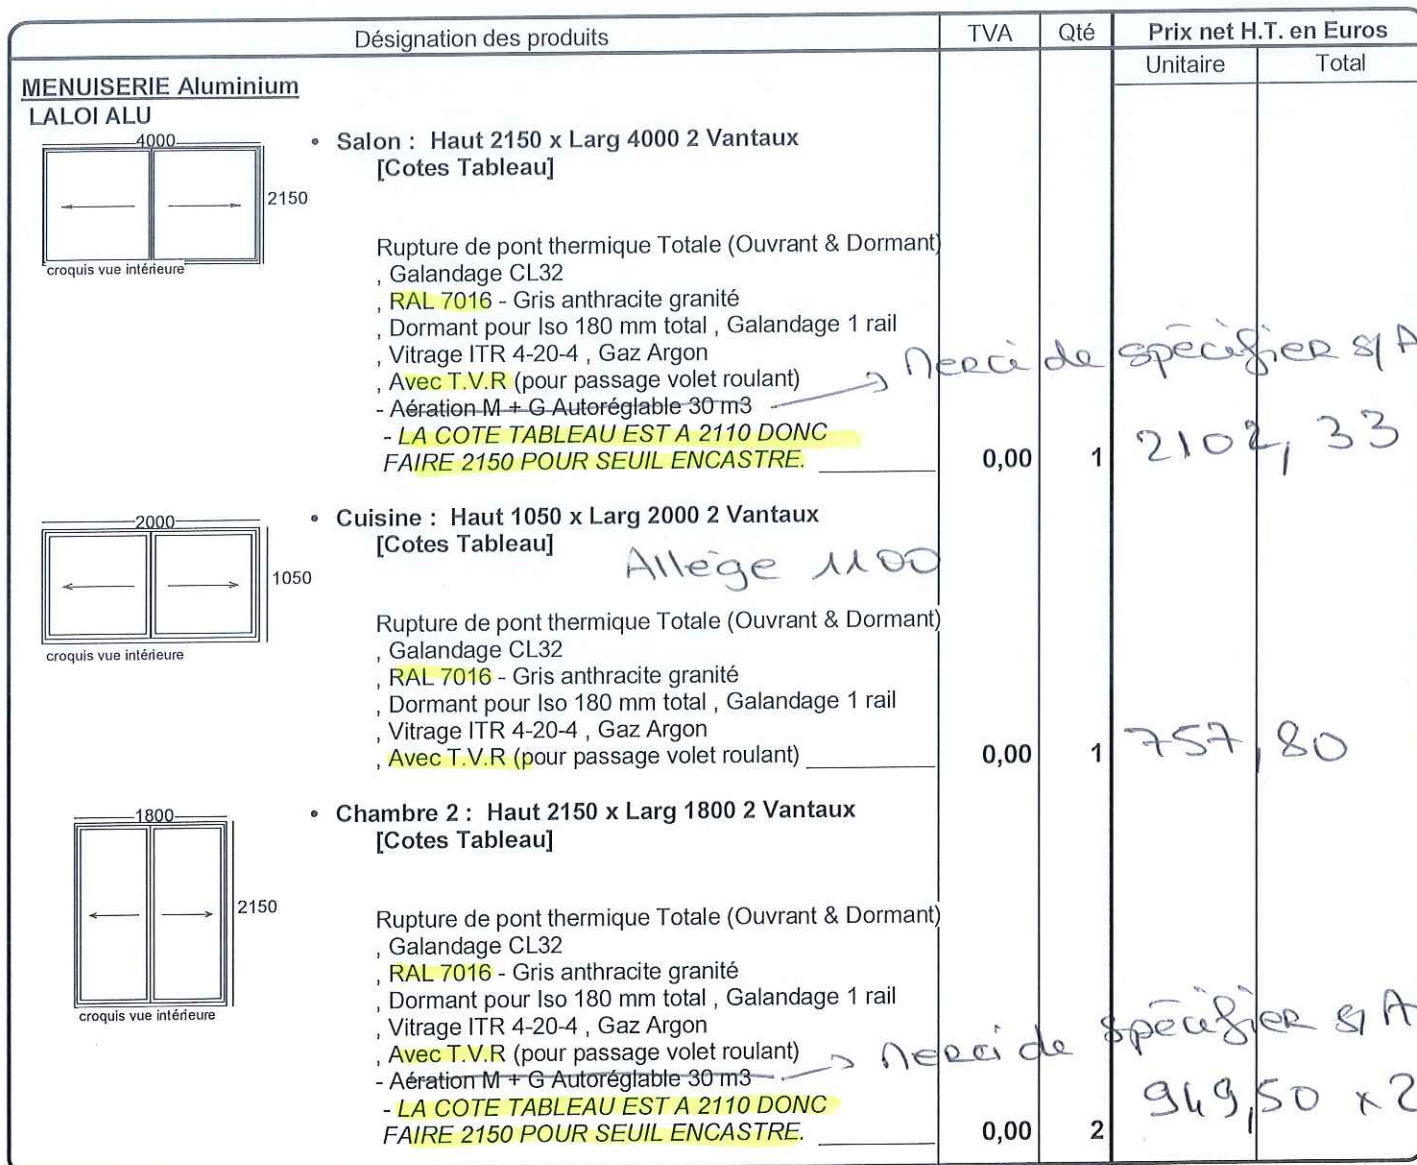 Désignation des produits TVA Qté Prix net H.T. en Euros
Unitaire Total
MENUISERIE Aluminium
LALOI ALU
4000
2150
croquis vue intérieure
• Salon : Haut 2150 x Larg 4000 2 Vantaux
[Cotes Tableau]
Rupture de pont thermique Totale (Ouvrant & Dormant)
, Galandage CL32
, RAL 7016 - Gris anthracite granité
, Dormant pour Iso 180 mm total , Galandage 1 rail
, Vitrage ITR 4-20-4 , Gaz Argon
, Avec T.V.R (pour passage volet roulant)
Merci de spécifier s/ A
- Aération M + G Autoréglable 30 m3
- LA COTE TABLEAU EST A 2110 DONC
FAIRE 2150 POUR SEUIL ENCASTRE. 0,00 1 2102, 33
2000
1050
croquis vue intérieure
• Cuisine : Haut 1050 x Larg 2000 2 Vantaux
[Cotes Tableau]
Allège 1100
Rupture de pont thermique Totale (Ouvrant & Dormant)
, Galandage CL32
, RAL 7016 - Gris anthracite granité
, Dormant pour Iso 180 mm total , Galandage 1 rail
, Vitrage ITR 4-20-4 , Gaz Argon
, Avec T.V.R (pour passage volet roulant) 0,00 1 757,80
1800
2150
croquis vue intérieure
• Chambre 2 : Haut 2150 x Larg 1800 2 Vantaux
[Cotes Tableau]
Rupture de pont thermique Totale (Ouvrant & Dormant)
, Galandage CL32
, RAL 7016 - Gris anthracite granité
, Dormant pour Iso 180 mm total , Galandage 1 rail
, Vitrage ITR 4-20-4 , Gaz Argon
, Avec T.V.R (pour passage volet roulant)
Merci de spécifier s/ A
- Aération M + G Autoréglable 30 m3
- LA COTE TABLEAU EST A 2110 DONC
FAIRE 2150 POUR SEUIL ENCASTRE. 0,00 2 949,50 x 2